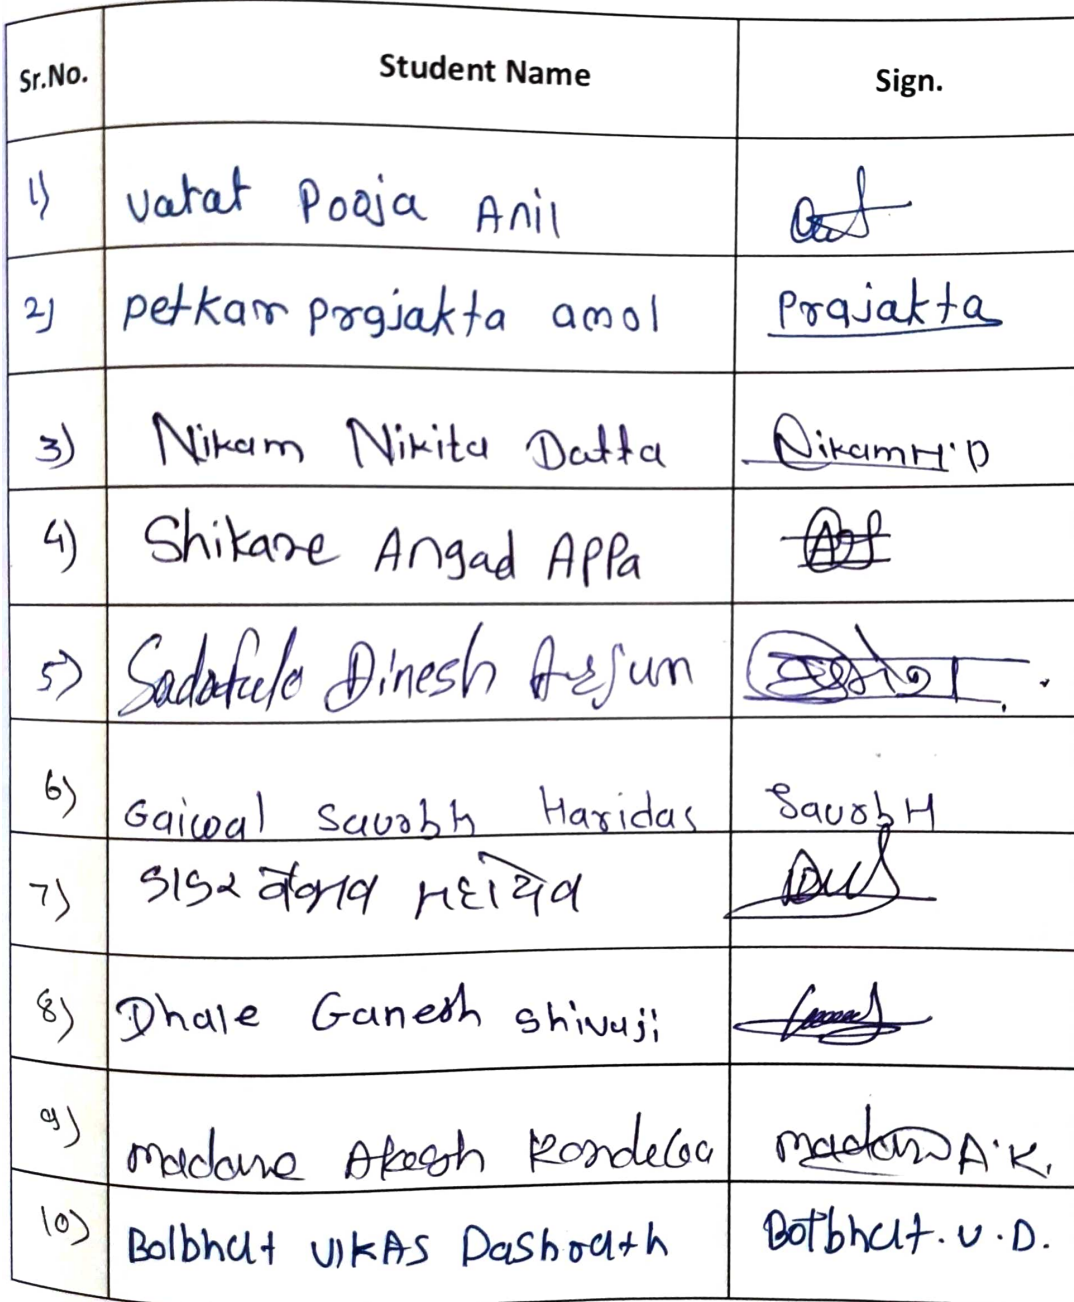 Sr.No. Student Name Sign.
1) Varat Pooja Anil
2) petkar prajakta amol Prajakta
3) Nikam Nikita Datta Nikam N.D
4) Shikare Angad Appa
5) Sadafule Dinesh Arjun
6) Gaiwal Saurabh Haridas SaurabH
7)
8) Dhale Ganesh Shivaji
9) madane Akash Kondeba madane A.K.
10) Bolbhat VIKAS Dashrath Botbhat.V.D.